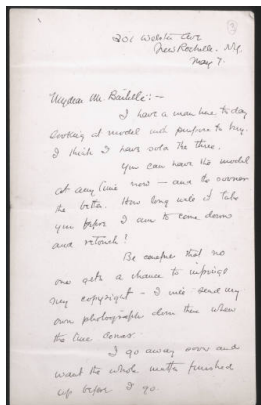 201 Webster Ave
New Rochelle, N.Y.
May 7.
My dear Mr
I have a man here to day
looking at model with purpose to buy.
I think I have sold the three.
You can have the model
at any time now — and the sooner
the better. How long will it take
you before I am to come down
and retouch?
Be careful that no
one gets a chance to infringe
my copyright — I will send my
own photographer down there when
the time comes.
I go away soon and
want the whole matter finished
up before I go